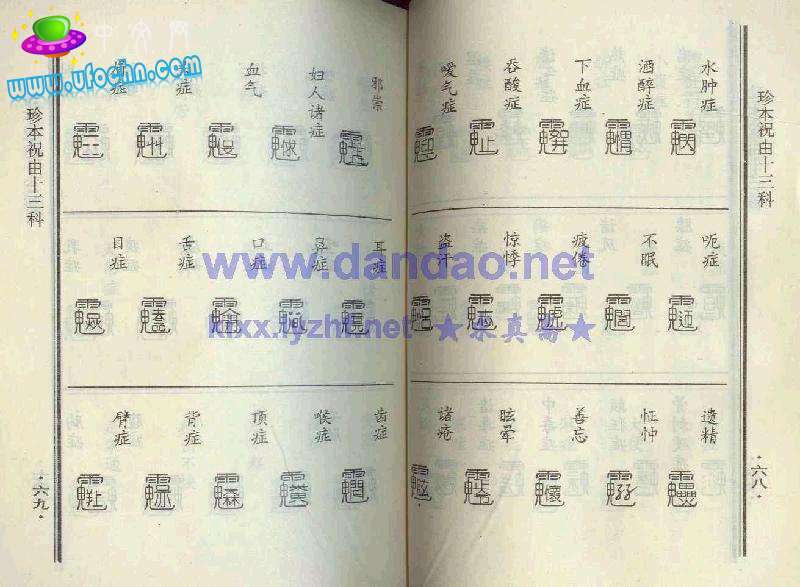 珍本祝由十三科
·六八·
水肿症
酒醉症
下血症
吞酸症
嗳气症
呃症
不眠
疲倦
惊悸
盗汗
遗精
怔忡
善忘
眩晕
诸疮
邪祟
妇人诸症
血气
症
症
耳症
鼻症
口症
舌症
目症
齿症
喉症
顶症
背症
臂症
珍本祝由十三科
·六九·
中文网
www.ufochn.com
www.dandao.net
kixx.lyzhf.net ★ 真斋 ★